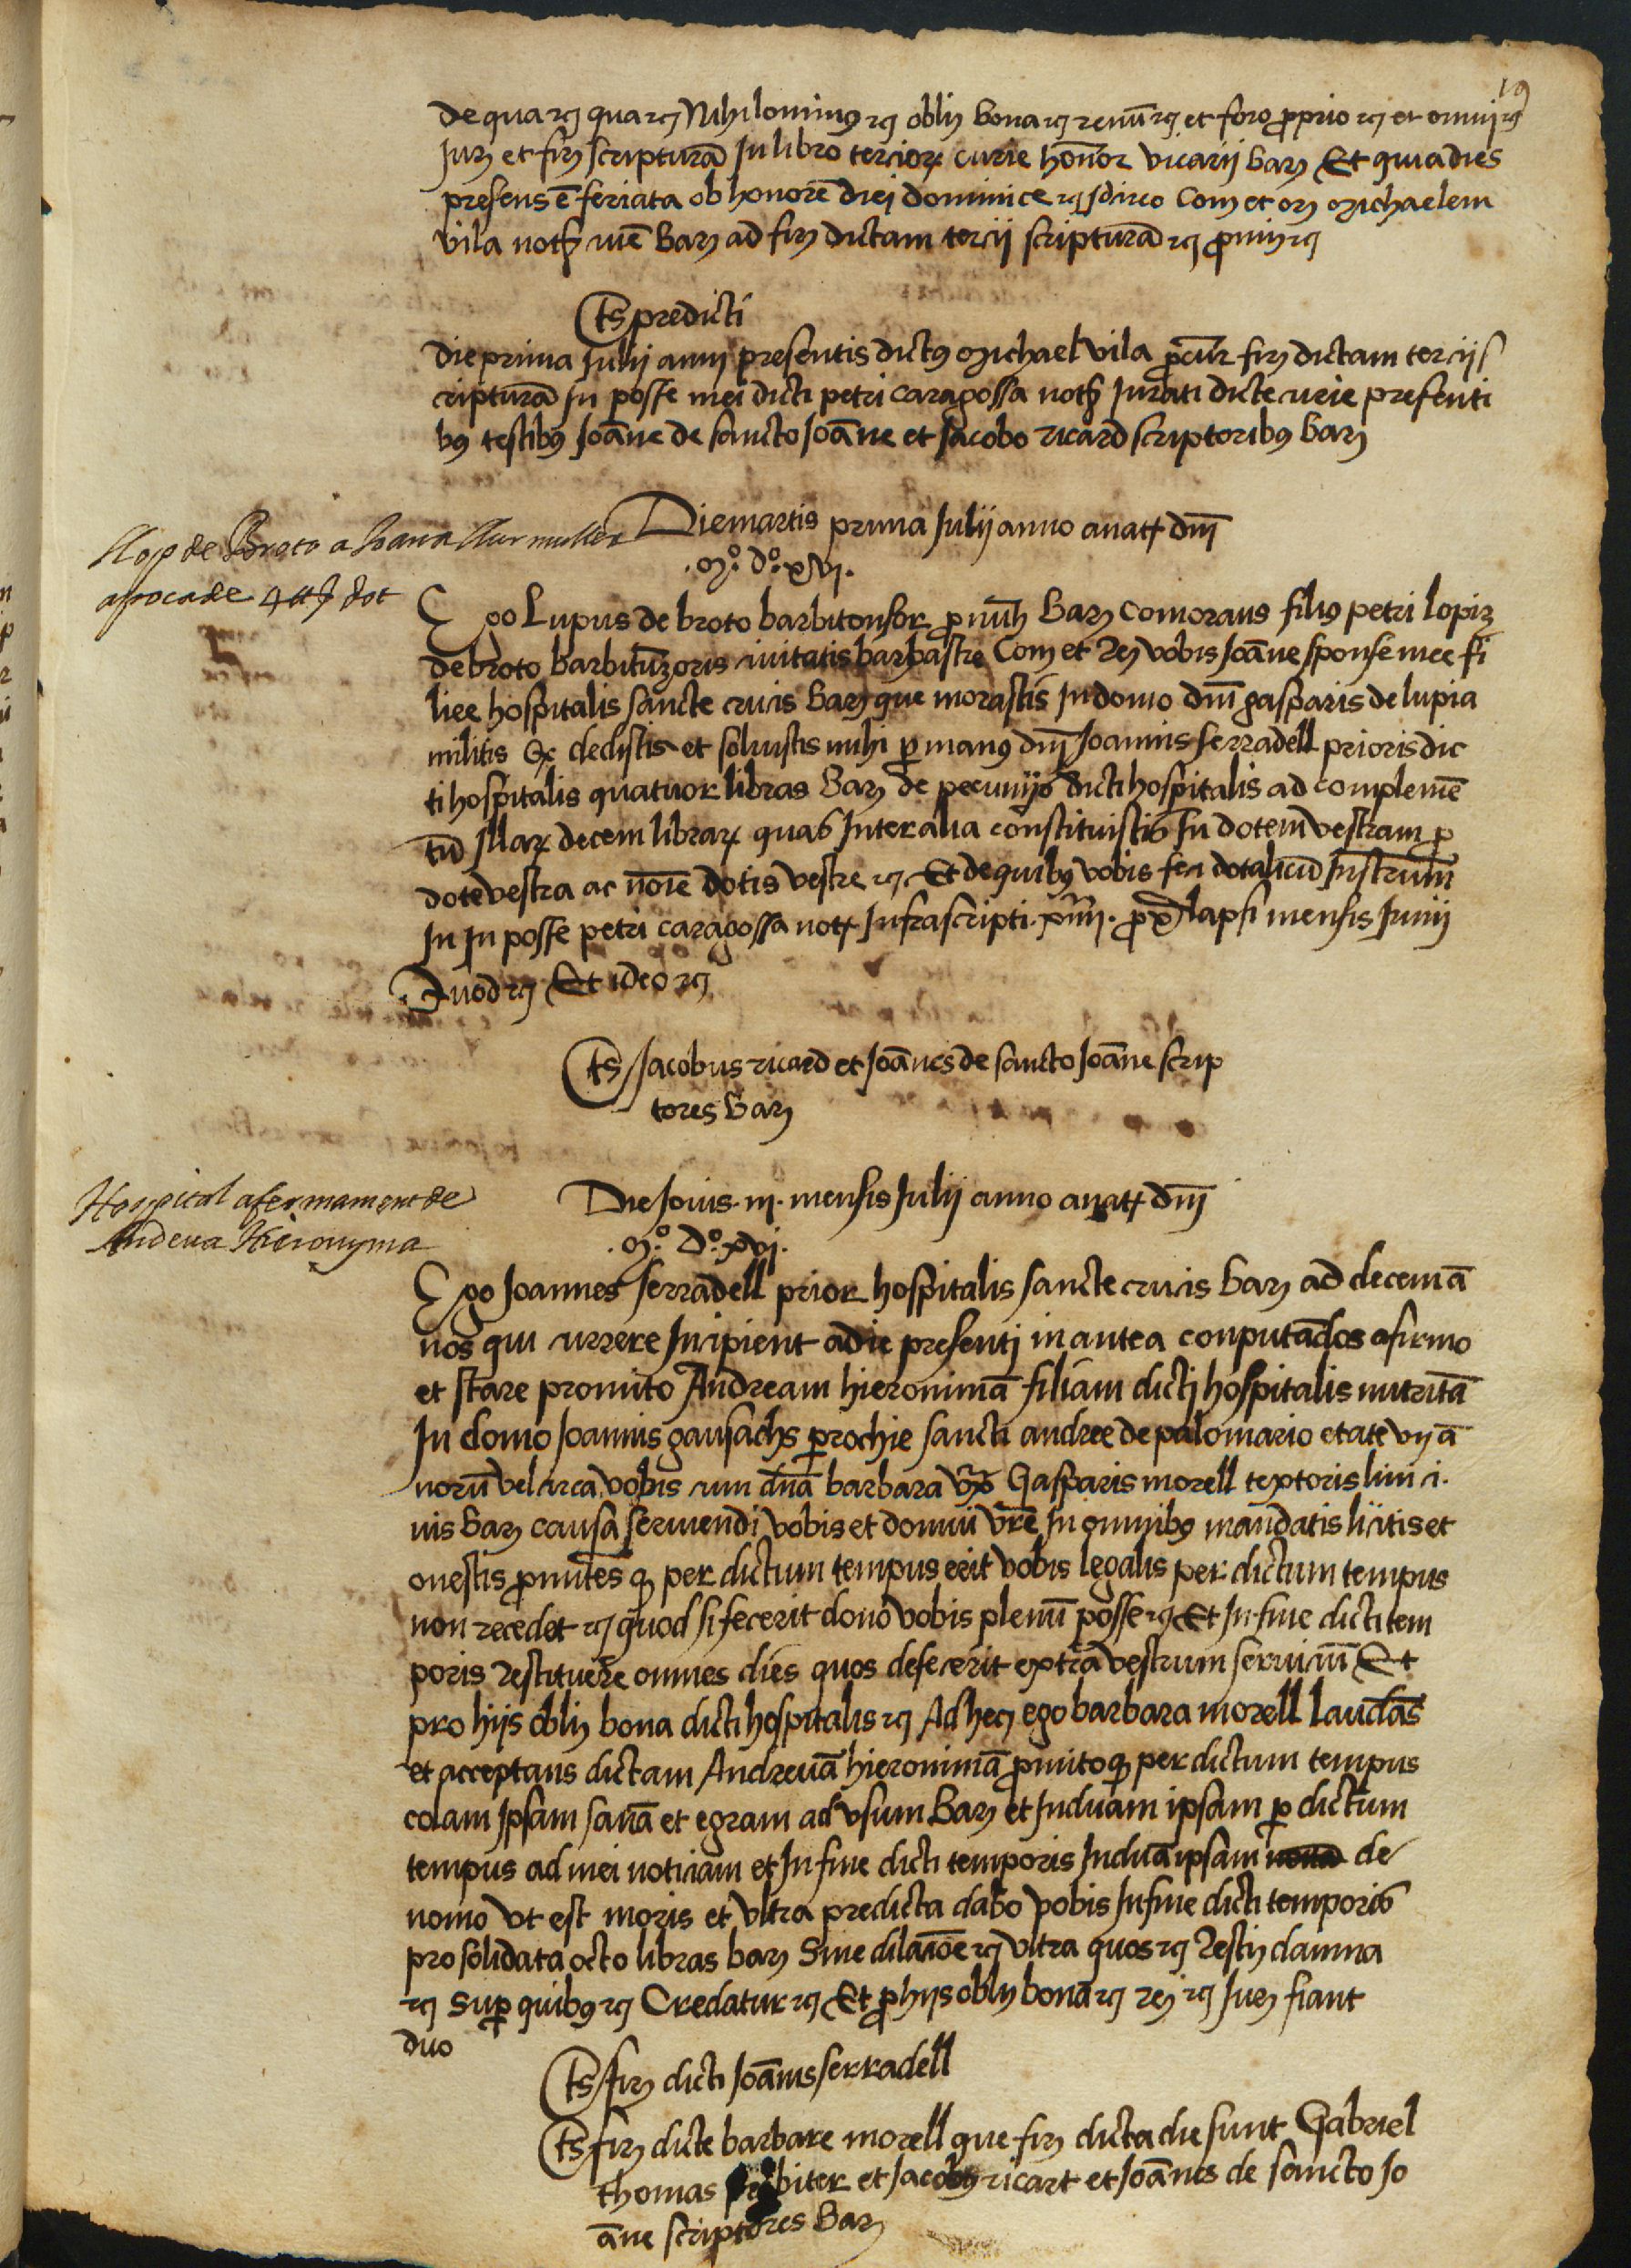 19
de qua rꝫ qua rꝫ Nihilominꝰ rꝫ oblig bona rꝫ renũ rꝫ et foro ꝓprio rꝫ et omni rꝫ
Jurꝫ et firꝫ scripturā In libro tercioꝝ curie honor vicarij Barꝫ Et quia dies
presens ē feriata ob honorē diei dominice rꝫ Idirco Com et orꝫ Michaelem
vila notꝝ ciuē Barꝫ ad firꝫ dictam tercij scripturā rꝫ ꝓmij rꝫ
Ts predicti
Die prima Julij anni presentis dictꝰ Michael vila ꝓcur firꝫ dictam tercij s
cripturā In posse mei dicti petri caragossa notꝝ Jurati dicte curie presenti
bꝰ testibꝰ Joāne de sancto Joāne et Jacobo ricard scriptoribꝰ Barꝫ
Lop de Broto a Joana sur muller
apoca de 4 ₶ dot
Die martis prima Julij anno a natꝝ dñi
.Mº. Dº. xvj.
Ego Lupus de broto barbitonsor ꝓ nũc Barꝫ comorans filiꝰ petri lopiz
de broto barbitũzoris ciuitatis barbastre Com et Rej vobis Joāne sponse mee fi
liee hospitalis sancte crucis Barꝫ que morastis In domo dñi gasparis de lupia
militis Qꝫ dedistis et soluistis mihi ꝑ manꝰ dñi Joannis serradell prioris dic
ti hospitalis quatuor libras Barꝫ de pecunijs dicti hospitalis ad complemē
tũ Illaꝝ decem libraꝝ quas Inter alia constituistis In dotem vestram ꝓ
dote vestra ac noīe dotis vestre rꝫ Et de quibꝰ vobis feci dotaliciũ Instrum
In In posse petri caragossa notꝝ Infrascripti .xiiij. ꝓx lapsi mensis Junij
Quod rꝫ Et ideo rꝫ
Ts Jacobus ricard et Joānes de sancto Joāne scrip
tores Barꝫ
Hospital afermament de
Andreua Hieronyma
Die Jouis .iij. mensis Julij anno a natꝝ dñi
.Mº. Dº. xvj.
Ego Joannes serradell prior hospitalis sancte crucis Barꝫ ad decem ā
nos qui currere Incipient a die presenti in antea conputādos afirmo
et stare promito Andream hieronimā filiam dicti hospitalis nutritā
In domo Joannis gausachs ꝑrochie sancti andree de palomario etate vij ā
norũ vel circa vobis cum dña barbara vxͦ Gasparis morell textoris lini ci.
uis Barꝫ causa seruiendi vobis et domui vr̄e In omnibꝰ mandatis licitis et
onestis ꝓmitēs qꝫ per dictum tempus erit vobis legalis per dictum tempus
non recedet rꝫ quod si fecerit dono vobis plenũ posse rꝫ Et In fine dicti tem
poris restituere omnes dies quos defecerit extra vestrum seruiciũ Et
pro hijs oblig bona dicti hospitalis rꝫ Ad hec ego barbara morell laudās
et acceptans dictam Andreuā hieronimā ꝓmito qꝫ per dictum tempus
colam Ipsam sanā et egram ad vsum Barꝫ et Induam ipsam ꝑ dictum
tempus ad mei noticiam et In fine dicti temporis Induā ipsam de
nouo vt est moris et vltra predicta dabo vobis In fine dicti temporis
pro solidata octo libras barꝫ Sine dilacioē rꝫ vltra quos rꝫ Restij damna
rꝫ Suꝑ quibꝰ rꝫ Credatur rꝫ Et ꝓ hijs oblig bona rꝫ rej rꝫ Jurꝫ fiant
duo
Ts firꝫ dicti Joānis serradell
Ts firꝫ dicte barbare morell que firꝫ dicta die sunt Gabriel
thomas presbiter et Jacobꝰ ricart et Joānes de sancto Jo
āne scriptores Barꝫ